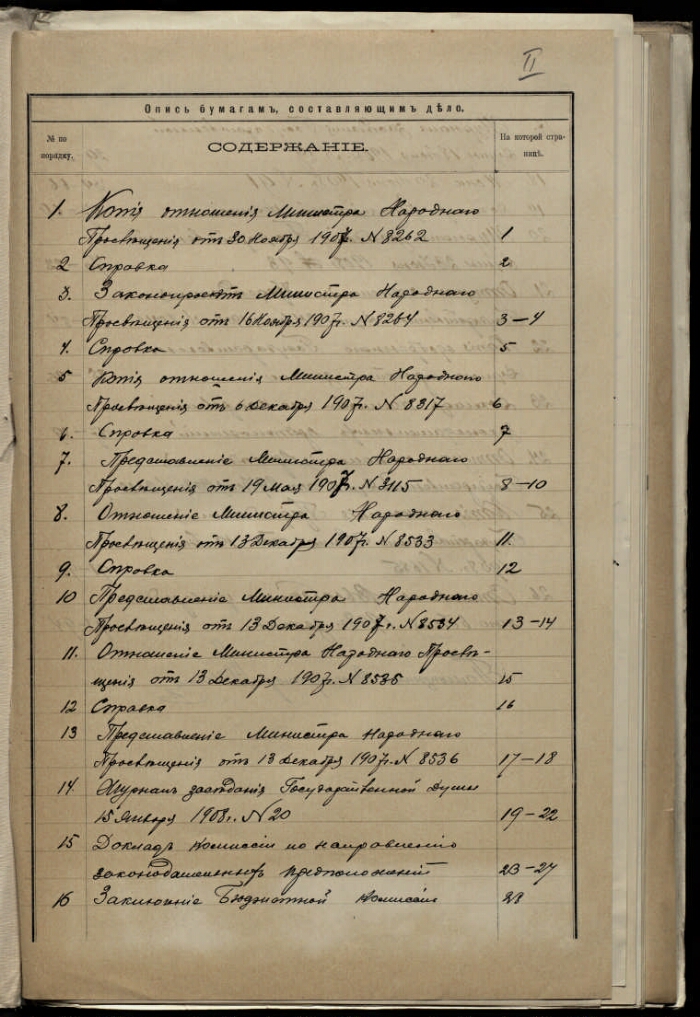 II
Опись бумагамъ, составляющимъ дѣло.
№ по порядку.
СОДЕРЖАНІЕ.
На которой страницѣ.
1. Копія отношенія Министра Народнаго
Просвѣщенія отъ 30 Ноября 1907г. N 8262 1
2 Справка 2
3. Законопроэктъ Министра Народнаго
Просвѣщенія отъ 16 Ноября 1907г. N 8264 3-4
4. Справка 5
5 Копія отношенія Министра Народнаго
Просвѣщенія отъ 6 Декабря 1907г. N 8317 6
6. Справка 7
7. Представленіе Министра Народнаго
Просвѣщенія отъ 19 Мая 1907г. N 3115 8-10
8. Отношеніе Министра Народнаго
Просвѣщенія отъ 13 Декабря 1907г. N 8533 11.
9. Справка 12
10 Представленіе Министра Народнаго
Просвѣщенія отъ 13 Декабря 1907г. N 8534 13-14
11. Отношеніе Министра Народнаго Просвѣ-
щенія отъ 13 Декабря 1907г. N 8535 15
12 Справка 16
13 Представленіе Министра Народнаго
Просвѣщенія отъ 13 Декабря 1907г. N 8536 17-18
14. Журналъ засѣданія Государственной Думы
15 Января 1908г. N 20 19-22
15 Докладъ Комиссіи по направленію
законодательныхъ предположеній 23-27
16 Заключеніе Бюджетной Комиссіи 28